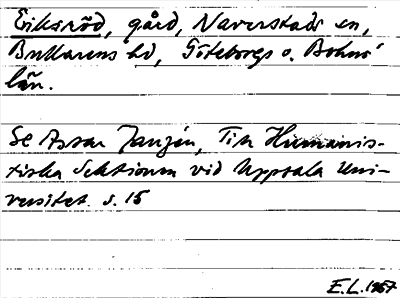 Eriksröd, gård, Naverstads sn,
Bullarens hd, Göteborgs o. Bohus
län.
Se Assar Janzén, Till Humanis-
tiska Sektionen vid Uppsala Uni-
versitet. s. 15
E.L. 1967